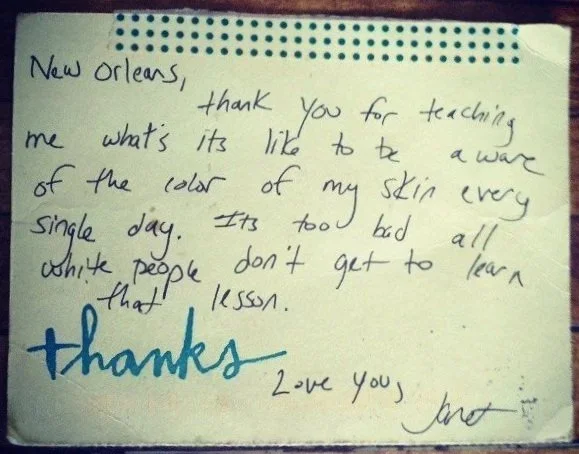 New Orleans,
thank you for teaching
me what's its like to be aware
of the color of my skin every
single day. Its too bad all
white people don't get to learn
that lesson.
thanks
Love you,
Janet